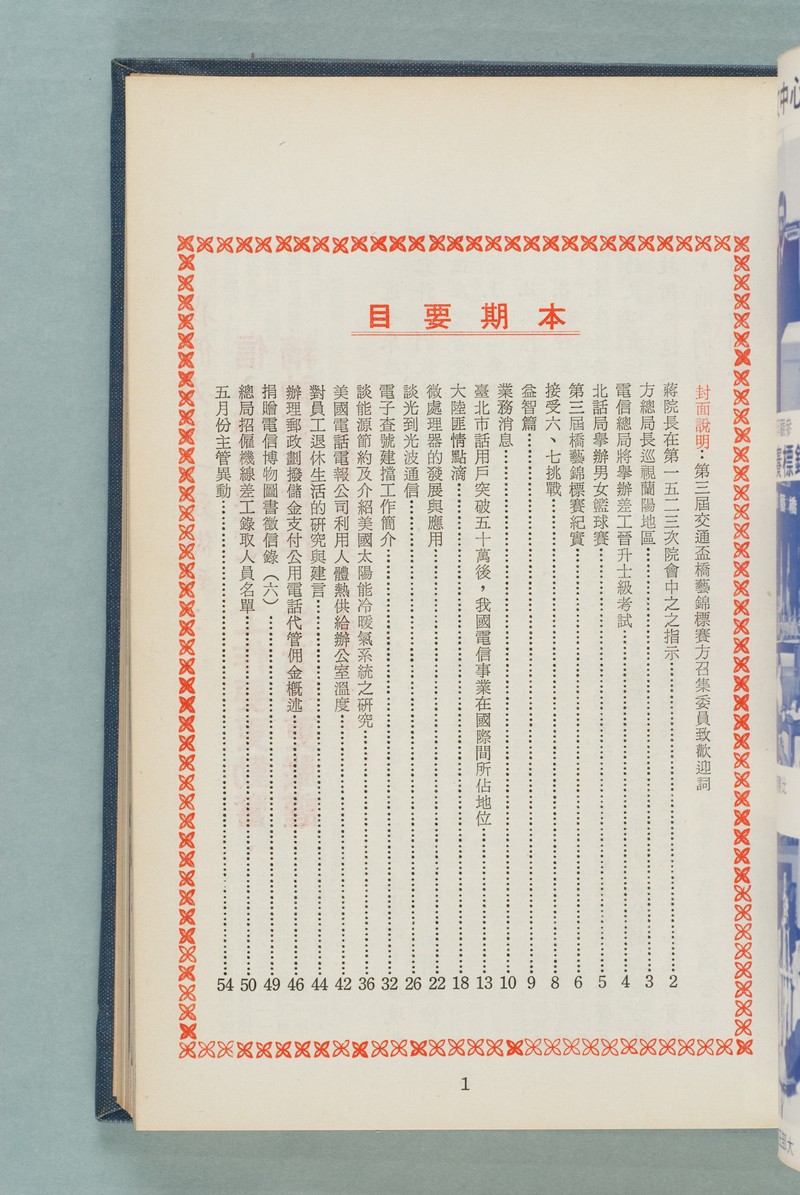 本期要目
封面說明：第三屆交通盃橋藝錦標賽方召集委員致歡迎詞
蔣院長在第一五二三次院會中之之指示……2
方總局長巡視蘭陽地區……3
電信總局將舉辦差工晉升士級考試……4
北話局舉辦男女籃球賽……5
第三屆橋藝錦標賽紀實……6
接受六、七挑戰……8
益智篇……9
業務消息……10
臺北市話用戶突破五十萬後，我國電信事業在國際間所佔地位……13
大陸匪情點滴……18
微處理器的發展與應用……22
談光到光波通信……26
電子查號建擋工作簡介……32
談能源節約及介紹美國太陽能冷暖氣系統之研究……36
美國電話電報公司利用人體熱供給辦公室溫度……42
對員工退休生活的研究與建言……44
辦理郵政劃撥儲金支付公用電話代管佣金概述……46
捐贈電信博物圖書徵信錄（六）……49
總局招僱機線差工錄取人員名單……50
五月份主管異動……54
1